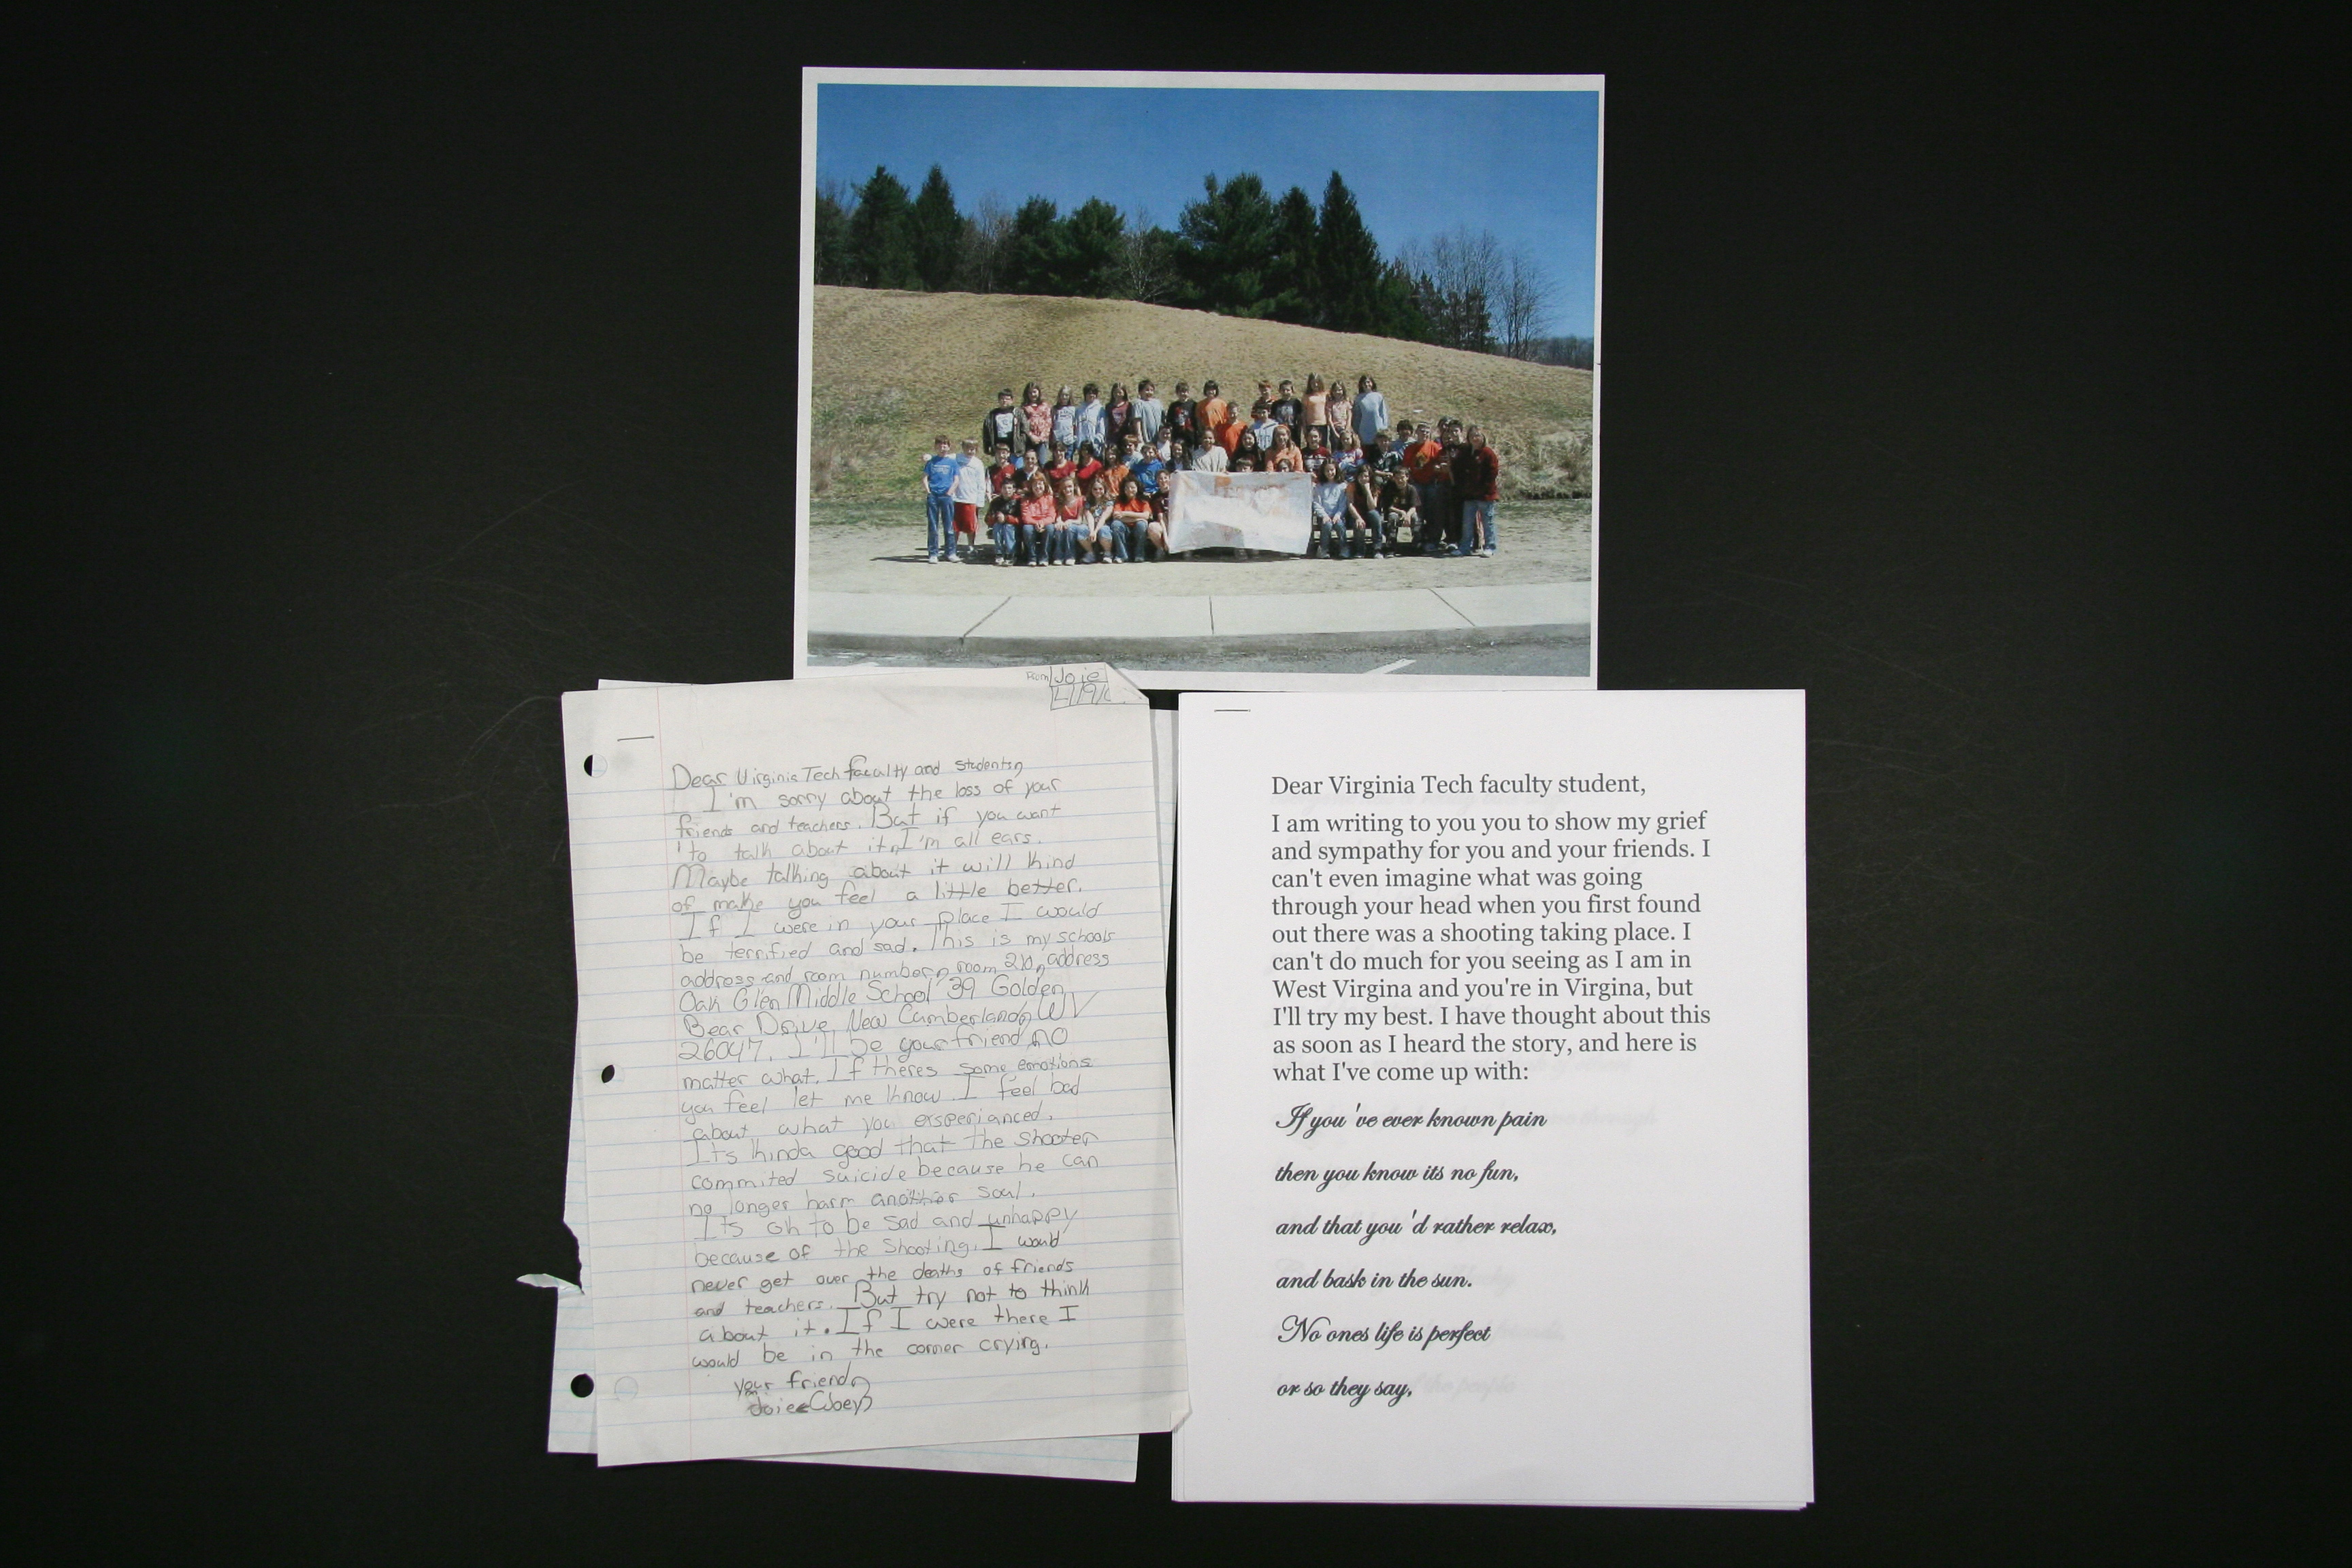 From Joie
Dear Virginia Tech faculty and students,
I'm sorry about the loss of your
friends and teachers. But if you want
to talk about it, I'm all ears.
Maybe talking about it will kind
of make you feel a little better.
If I were in your place I would
be terrified and sad. This is my schools
address and room number, room 210, address
Oak Glen Middle School 39 Golden
Bear Drive, New Cumberland, WV
26047. I'll be your friend, no
matter what. If theres some emotions
you feel let me know. I feel bad
about what you exsperianced.
Its kinda good that the shooter
commited suicide because he can
no longer harm another soul.
Its ok to be sad and unhappy
because of the shooting. I would
never get over the deaths of friends
and teachers. But try not to think
about it. If I were there I
would be in the corner crying.
your friend,
Joie
Dear Virginia Tech faculty student,
I am writing to you you to show my grief
and sympathy for you and your friends. I
can't even imagine what was going
through your head when you first found
out there was a shooting taking place. I
can't do much for you seeing as I am in
West Virgina and you're in Virgina, but
I'll try my best. I have thought about this
as soon as I heard the story, and here is
what I've come up with:
If you 've ever known pain
then you know its no fun,
and that you 'd rather relax,
and bask in the sun.
No ones life is perfect
or so they say,